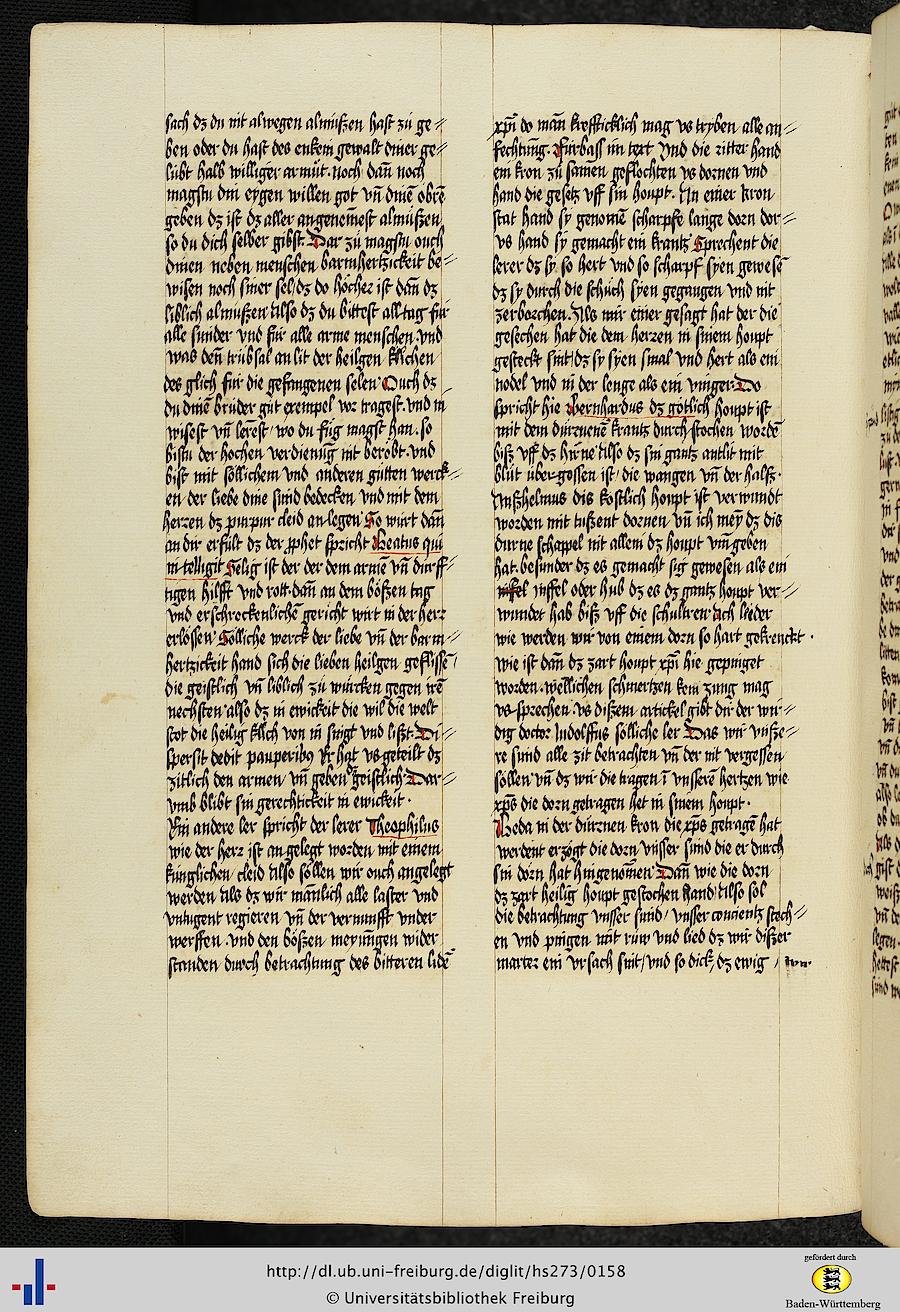 sach dz du nit alwegen almůſzen haſt zů ge⸗
ben oder du haſt des enkein gewalt diner ge⸗
lübt halb williger armůt. noch dañ noch
magſtu din eygen willen got vñ dinē obrē
geben dz iſt dz aller angenemeſt almůſzen
ſo du dich ſelber gibſt. Dar zů magſtu ouch
dinen neben menſchen barmhertzickeit be⸗
wiſen noch ſiner ſel / dz do höcher iſt dañ dz
liblich almuſzen Alſo dz du bitteſt all tag für
alle ſunder vnd für alle arme menſchen vnd
was den trübſal an lit der heilgen kilchen
des glich für die gefangenen ſelen Ouch dz
du dinē brüder gůt exempel vor trageſt. vnd in
wiſeſt vñ lereſt / wo du fůg magſt han. ſo
biſtu der hochen verdienūg nit berobt. vnd
biſt mit ſöllichem vnd anderen gůtten werck⸗
en der liebe dine ſünd bedecken vnd mit dem
herzen dz purpur cleid an legen So würt dañ
an dir erfült dz der ꝓphet ſpricht Beatus qui
intelligit Selig iſt der der dem armē vñ dürff⸗
tigen hilfft vnd rott. dañ an dem böſzen tag
vnd erſchreckenlichē gericht wirt in der herr
erlöſſen Sölliche werck der liebe vñ der barm⸗
hertzickeit hand ſich die lieben heilgen gefliſſē /
die geiſtlich vñ liblich zů würcken gegen irē
nechſten alſo dz in ewickeit die wil die welt
ſtot die heilig kilch von in ſingt vnd liſzt Di⸗
ſperſit dedit pauperibꝰ Er hat vs geteilt dz
zitlich den armen vñ geben geiſtlich Dar⸗
vmb blibt ſin gerechtickeit in ewickeit .
Ein andere ler ſpricht der lerer Theophilus
wie der herr iſt an gelegt worden mit einem
künglichen cleid Alſo ſöllen wir ouch angelegt
werden Als dz wir manlich alle laſter vnd
vntugent regieren vñ der vernunfft vnder
werffen . vnd den böſzen meynūgen wider
ſtanden durch betrachtung des bitteren lidē
xp̄i do man krefſticklich mag vs tryben alle an⸗
fechtūng. Fürbaſſ im text Vnd die ritter hand
ein kron zů ſamen geflochten vs dornen vnd
hand die geſetz vff ſin houpt. An einer kron
ſtat hand ſy genomē ſcharpfe lange dorn dor⸗
vs hand ſy gemacht ein krantz Sprechent die
lerer dz ſy ſo hert vnd ſo ſcharpf ſyen geweſē
dz ſy durch die ſchůch ſyen gegangen vnd nit
zerborchen. Als mir einer geſagt hat der die
geſechen hat die dem herzen in ſinem houpt
geſteckt ſint / dz ſy ſyen ſmal vnd hert als ein
nodel vnd in der lenge als ein vinger. Do
ſpricht hie Bernhardus dz götlich houpt iſt
mit dem dürninē krantz durch ſtochen wordē
biſz vff dz hirne Alſo dz ſin gantz antlit mit
blůt über goſſen iſt / die wangen vñ der halſz.
Anſzhelmus dis koſtlich houpt iſt verwundt
worden mit tuſzent dornen vñ ich mey dz dis
durne ſchappel nit allein dz houpt vm̄ geben
hat. beſunder dz es gemacht ſig geweſen als ein
inffel oder hub dz es dz gantz houpt ver⸗
wundet hab biſz vff die ſchultren ach lieder
wie werden wir von einem dorn ſo hart gekrenckt .
wie iſt dañ dz zart houpt xp̄i hie gepiniget
worden. wellichen ſchmertzen kein zung mag
vs ſprechen vs diſzem artickel gibt dir der wir⸗
dig doctor ludolffus ſölliche ler Das wir vnſze⸗
re ſünd alle zit betrachten vñ der nit vergeſſen
ſöllen vñ dz wir die tragen ī vnſſerē hertzen wie
xp̄s die dorn getragen het in ſinem houpt .
Beda in der dürnen kron die xp̄s getragē hat
werdent erzögt die dorn vnſſer ſünd die er durch
ſin dörn hat hin genomen Dañ wie die dorn
dz zart heilig houpt geſtochen hand / Alſo ſol
die betrachtung vnſſer ſünd / vnſſer concientz ſtech⸗
en vnd pingen mit rüw vnd lied dz wir diſzer
marter ein vrſach ſint / vnd ſo dick / dz ewig
http://dl.ub.uni-freiburg.de/diglit/hs273/0158
© Universitätsbibliothek Freiburg
gefördert durch
Baden-Württemberg